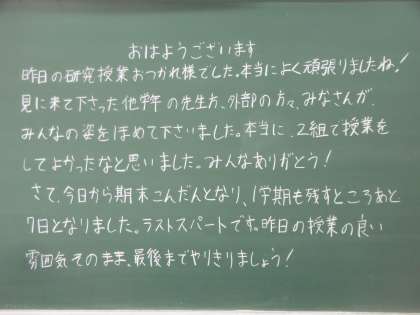 おはようございます
昨日の研究授業おつかれ様でした。本当によく頑張りましたね!
見に来て下さった他学年の先生方、外部の方々、みなさんが、
みんなの姿をほめて下さいました。本当に、2組で授業を
してよかったなと思いました。みんなありがとう!
さて、今日から期末こんだんとなり、1学期も残すところあと
7日となりました。ラストスパートです。昨日の授業の良い
雰囲気そのまま、最後までやりきりましょう!